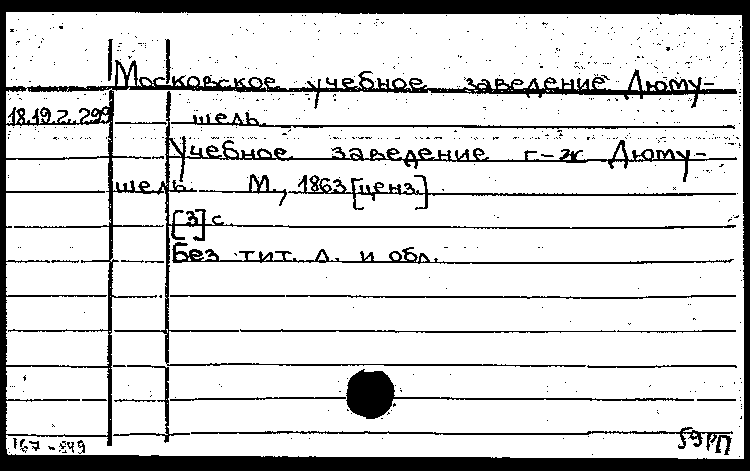 Московское учебное заведение Дюму-
18.19.2.299 шель.
Учебное заведение г-ж Дюму-
шель. М., 1863 [ценз.]
[3] с.
Без тит. л. и обл.
167-849
59РП